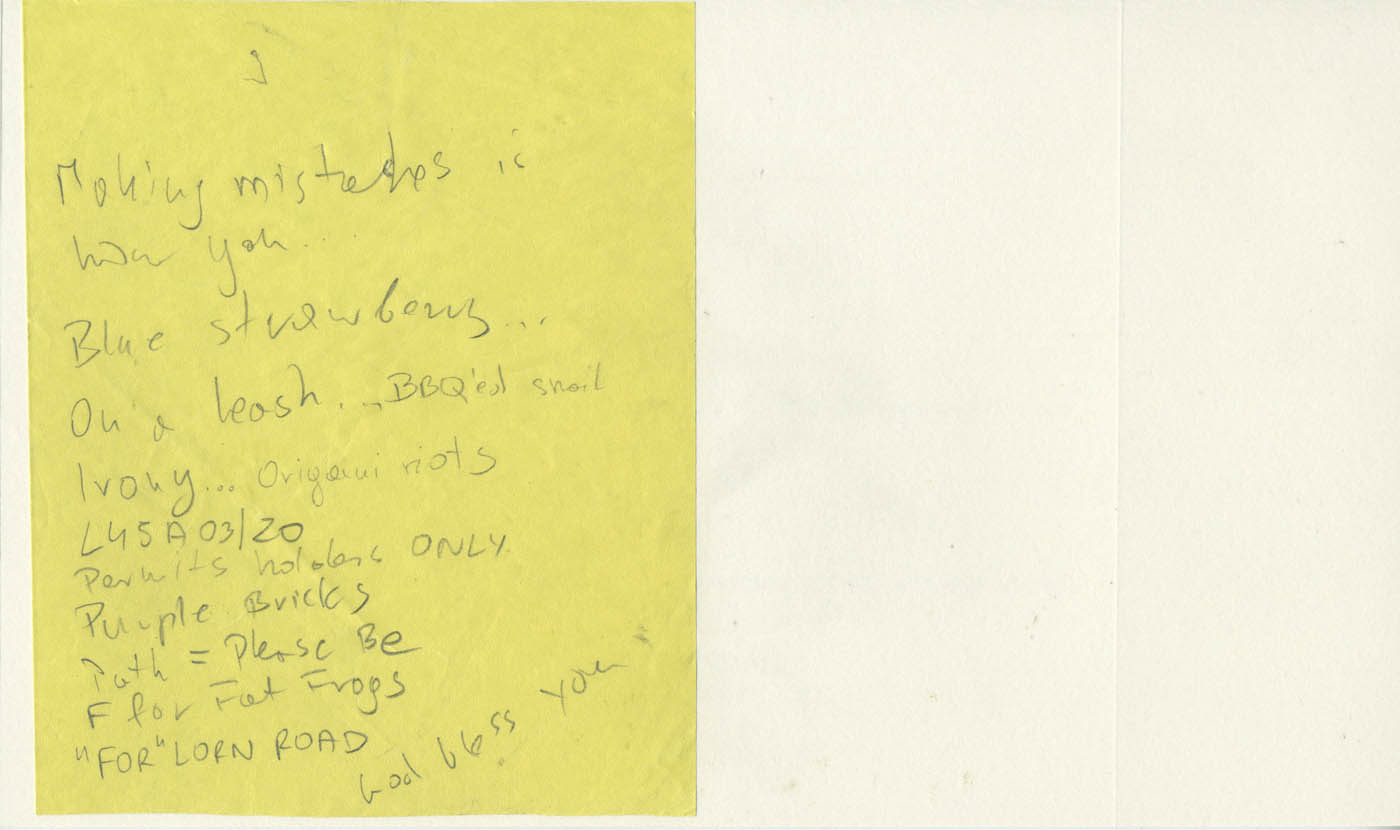 Making mistakes is
how you...
Blue strawberry...
On a leash... BBQ'ed snail
Irony... Origami riots
L45A03/20
Permits holders ONLY
Purple Bricks
Path = Please Be
F for Fat Frogs
"FOR" LORN ROAD
God bless you